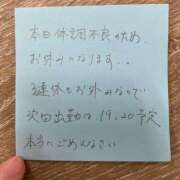 本日体調不良の為、
お休みになります...。
連休もお休みなので
次回出勤は19、20予定
本当にごめんなさい